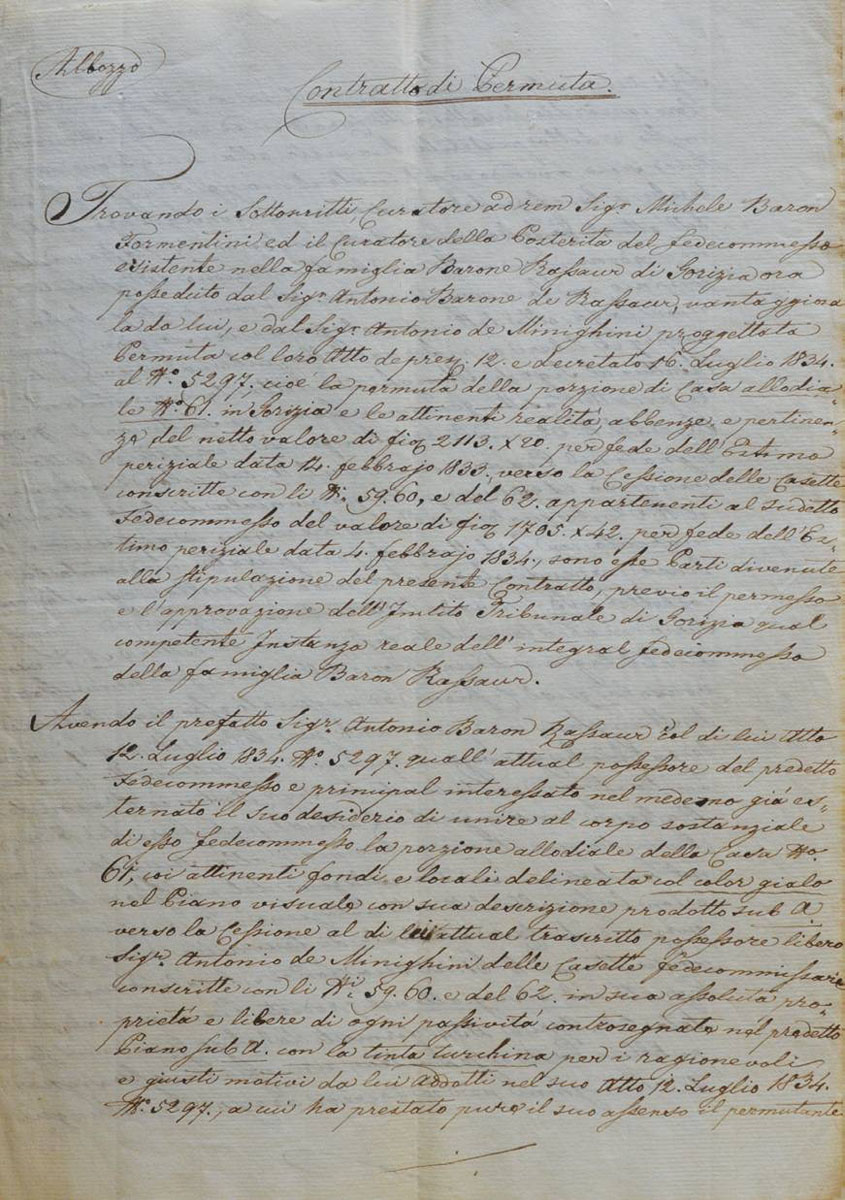 Abbozzo
Contratto di Permuta.
Trovando i Sottoscritti, Curatore ad rem Sigr. Michele Baron
Formentini, ed il Curatore della Posterità del fedecommesso
esistente nella famiglia Barone Rassaur di Gorizia ora
posseduto dal Sigr. Antonio Barone de Rassaur, vantaggiosa
la da lui, e dal Sigr. Antonio de Minighini proggettata
Permuta col loro Atto de pres. 12. e decretato 16. Luglio 1834.
al No. 5297, cioè la permuta della porzione di Casa allodia-
le No. 61. in Gorizia e le attinenti realità, abbenze, e pertinen-
ze del netto valore di 2113. x 20. per fede dell'Estimo
periziale data 14. febbrajo 1833, verso la Cessione delle Casette
conscritte con li Ni. 59. 60, e del 62. appartenenti al sudetto
Fedecommesso del valore di 1705. x 42. per fede dell'Es-
timo periziale data 4. febbrajo 1834., sono esse Parti divenute
alla stipulazione del presente Contratto, previo il permesso
e l'approvazione dell' Tribunale di Gorizia qual
competente Instanza reale dell' integral fedecommesso
della famiglia Baron Rassaur.
Avendo il prefatto Sigr. Antonio Baron Rassaur col di lui Atto
12. Luglio 1834. No. 5297. quall' attual possessore del predetto
Fedecommesso e principal interessato nel medemo già es-
ternato il suo desiderio di unire al corpo sostanziale
di esso fedecommesso la porzione allodiale della Casa No.
61, coi attinenti fondi e locali delineata col color gialo
nel Piano visuale con sua descrizione prodotto sub A.
verso la Cessione al di lei attual trascritto possessore libero
Sigr. Antonio de Minighini delle Casette fedecommissarie
conscritte con li Ni. 59. 60. e del 62. in sua assoluta pro-
prietà e libere di ogni passività controsegnate nel predetto
Piano sub A. con la tinta turchina per i ragionevoli
e giusti motivi da lui addotti nel suo Atto 12. Luglio 1834.
No. 5297., a cui ha prestato pure il suo assenso il permutante